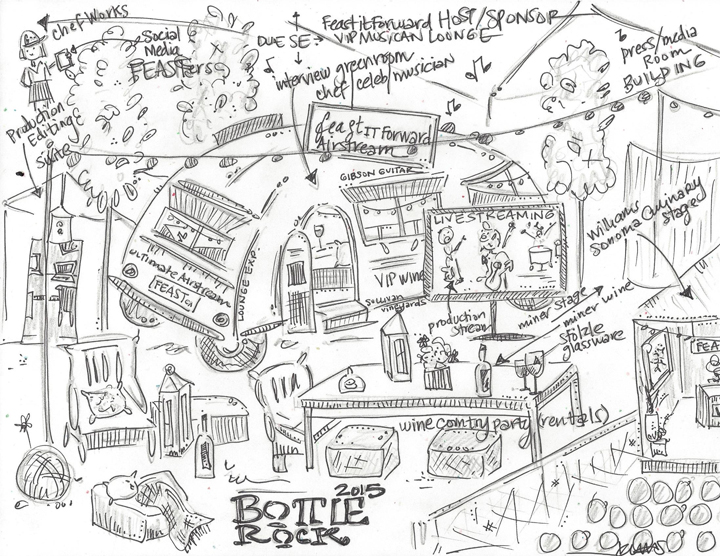 chefWorks
Social
Media
FEASTers
DUE SE
FeastitForward HOST/SPONSOR
VIP MUSICIAN LOUNGE
interview greenroom
chef celeb musician
press/media
Room
BUILDING
Production
Editing
Suite
feast IT Forward
Airstream
GIBSON GUITAR
LIVESTREAMING
Williams
Sonoma Culinary
Stage
ultimate Airstream
FEAST
LOUNGE EXP.
VIP Wine
Sullivan
vineyards
production
stream
miner stage
miner wine
stolzle
glassware
FEA
wine country party (rentals)
2015
BOTTLE
ROCK